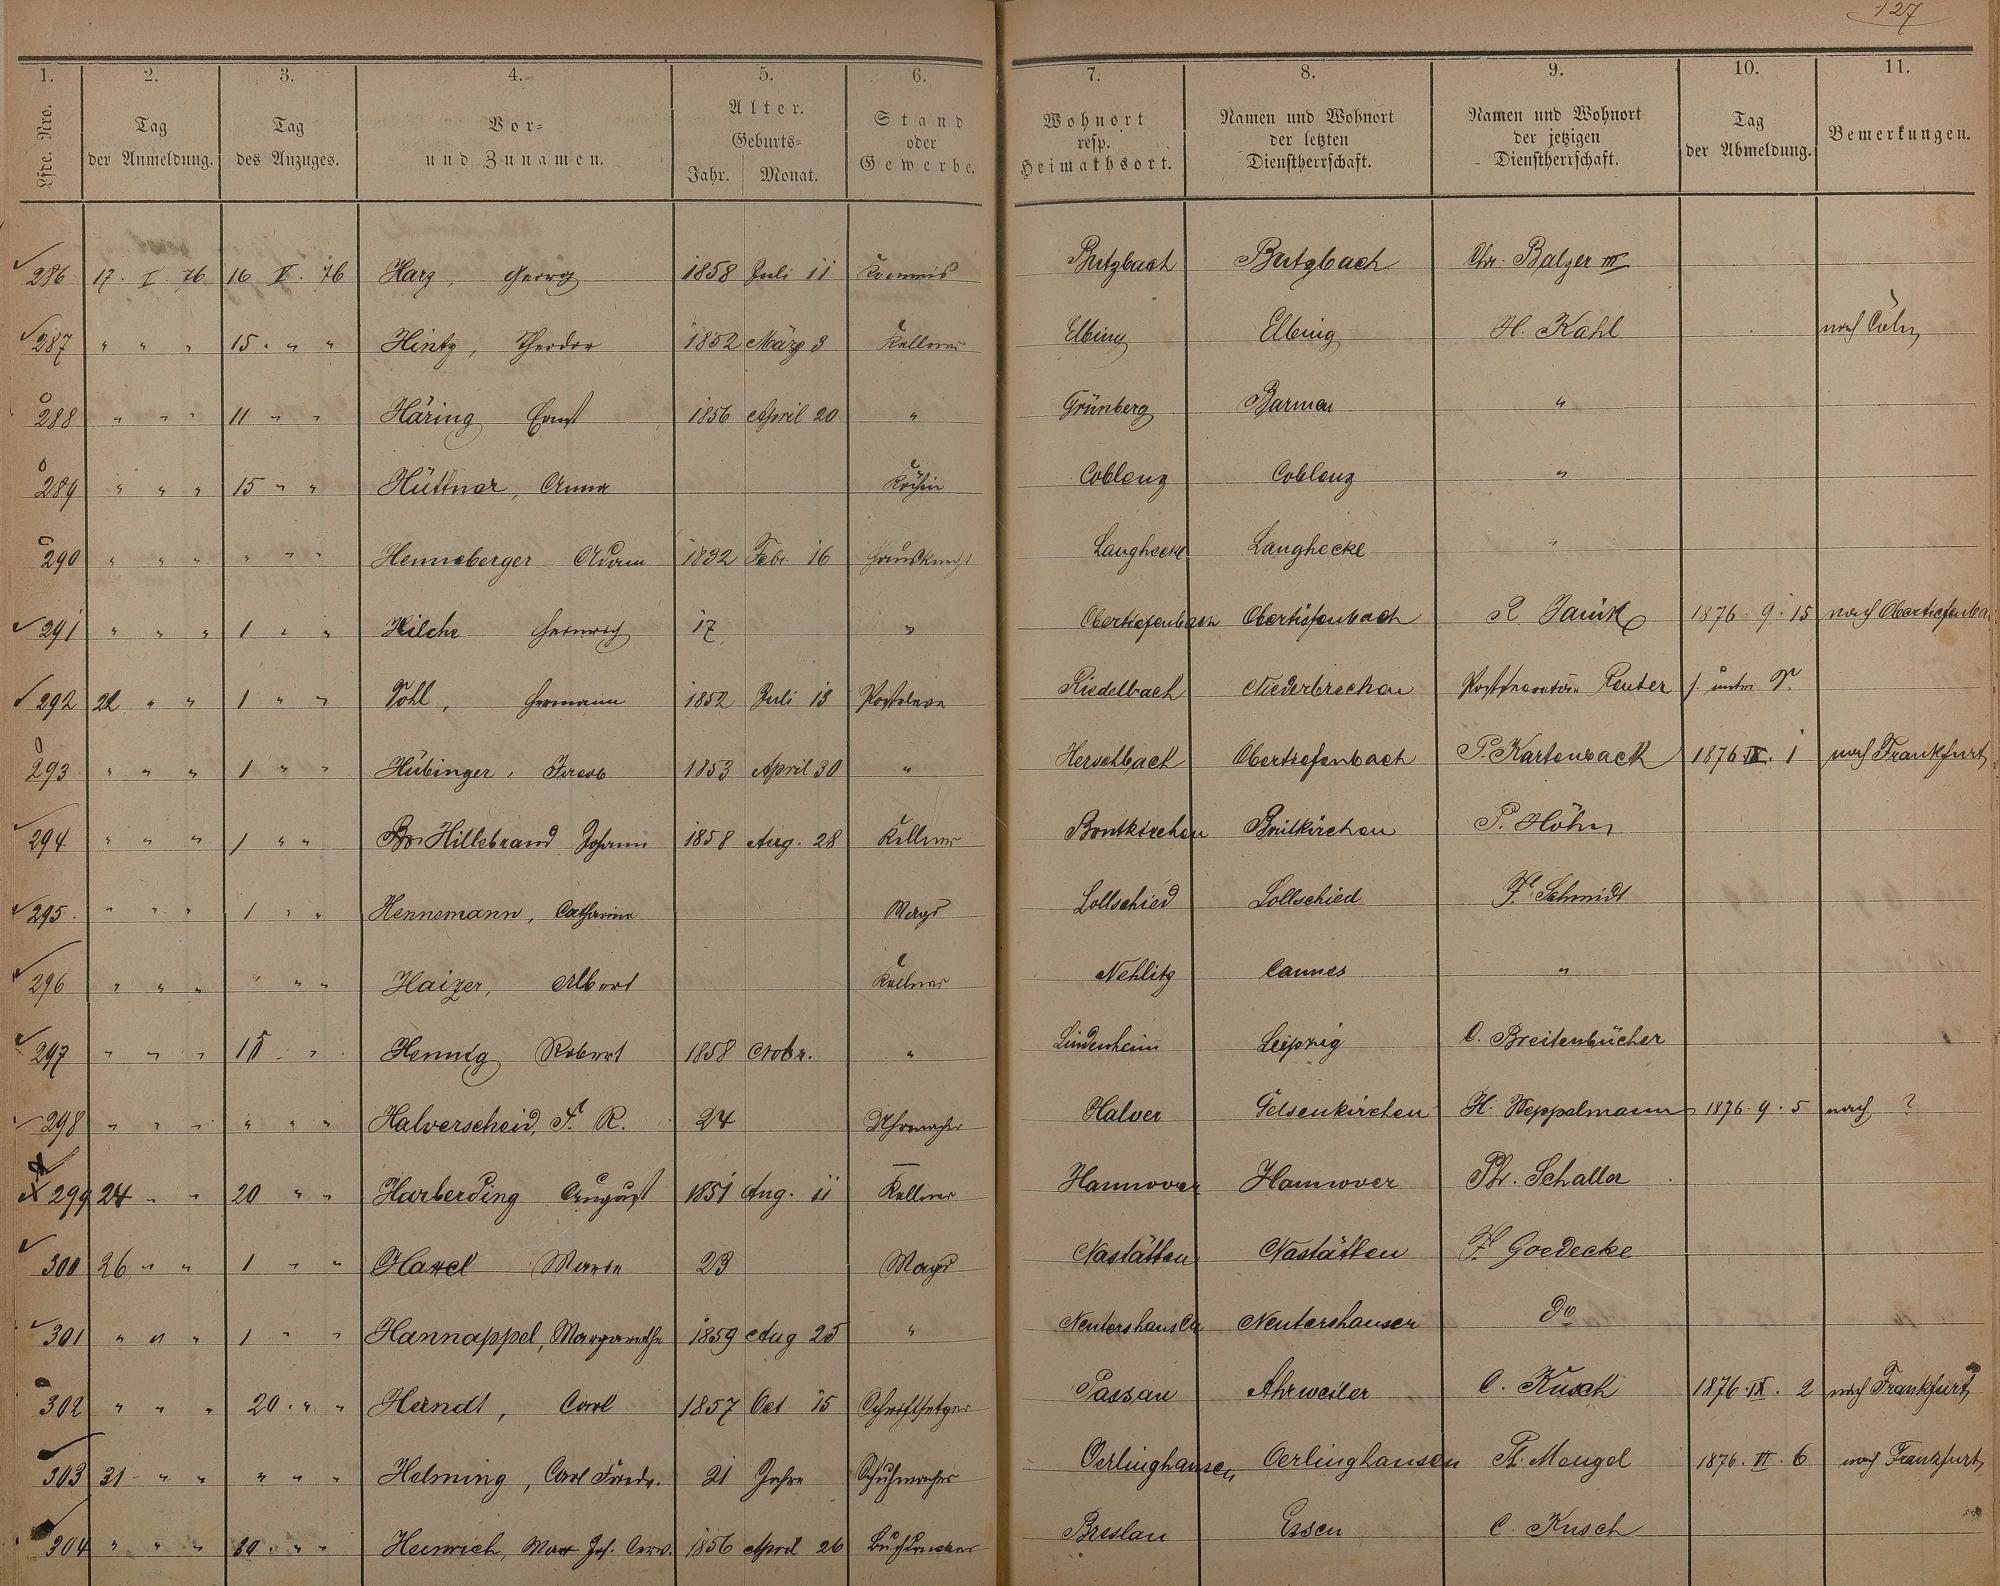 127
1. 2. 3. 4. 5. 6. 7. 8. 9. 10. 11.
Lfde. Nro. Tag der Anmeldung. Tag des Anzuges. Vor- und Zunamen. Alter. Geburts- Jahr. Monat. Stand oder Gewerbe. Wohnort resp. Heimathsort. Namen und Wohnort der letzten Dienstherrschaft. Namen und Wohnort der jetzigen Dienstherrschaft. Tag der Abmeldung. Bemerkungen.
286 17. 76 16 76 Harz, Georg 1858 Juli 11 Commis Butzbach Butzbach Chr. Balzer III
287 " " " 15. " " Hintz, Theodor 1852 März 3 Kellner Elbing Elbing H. Kahl nach Cöln
288 " " " 11 " " Häring Ernst 1856 April 20 " Grünberg Barmen "
289 " " " 15 " " Hüttner, Anna Köchin Coblenz Coblenz "
290 " " " " " " Henneberger Adam 1832 Febr. 16 Hausknecht Langhecke Langhecke "
291 " " " 1 " " Heinrich 17 " Obertiefenbach Obertiefenbach 1876. 9. 15 nach Obertiefenba
292 22 " " 1 " " Hermann 1852 Juli 13 Posteleve Riedelbach Niederbrechen Reuter
293 " " " 1 " " Hübinger, Jacob 1853 April 30 " Herschbach Obertiefenbach P. Kartenback 1876 IX. 1 nach Frankfurt
294 " " " 1 " " Hillebrand Johann 1858 Aug. 28 Kellner P. Höhn
295. " " " 1 " " Hennemann, Catharine Magd Lollschied Lollschied F. Schmidt
296 " " " " " " Haizer, Albert Kellner Nehlitz Cannes "
297 " " " 15 " " Hennig Robert 1858 Nobr. " Lindenheim Leipzig C. Breitenbücher
298 " " " " " " Halverscheid, F. R. 24 Uhrmacher Halver Gelsenkirchen H. Weppelmann 1876. 9. 5 nach ?
299 24 " " 20 " " Harberding August 1851 Aug. 11 Kellner Hannover Hannover Ph. Schaller
300 26 " " 1 " " 23 Magd Nastätten Nastätten F. Goedecke
301 " " " 1 " " Hannappel, Margarethe 1859 Aug 25 " Nentershausen Nentershausen do
302 " " " 20. " " Herndt, Carl 1857 Oct. 15 Schriftsetzer Passau Ahrweiler C. Kusch 1876. IX. 2 nach Frankfurt
303 31 " " " " " Helming, Carl Friedr. 21 Jahre Schuhmacher Oerlinghausen Oerlinghausen Ph. Mengel 1876. VI. 6 nach Frankfurt
304 " " " " " Heinrich, Max Jos. 1856 April 26 Buchdrucker Breslau Essen C. Kusch